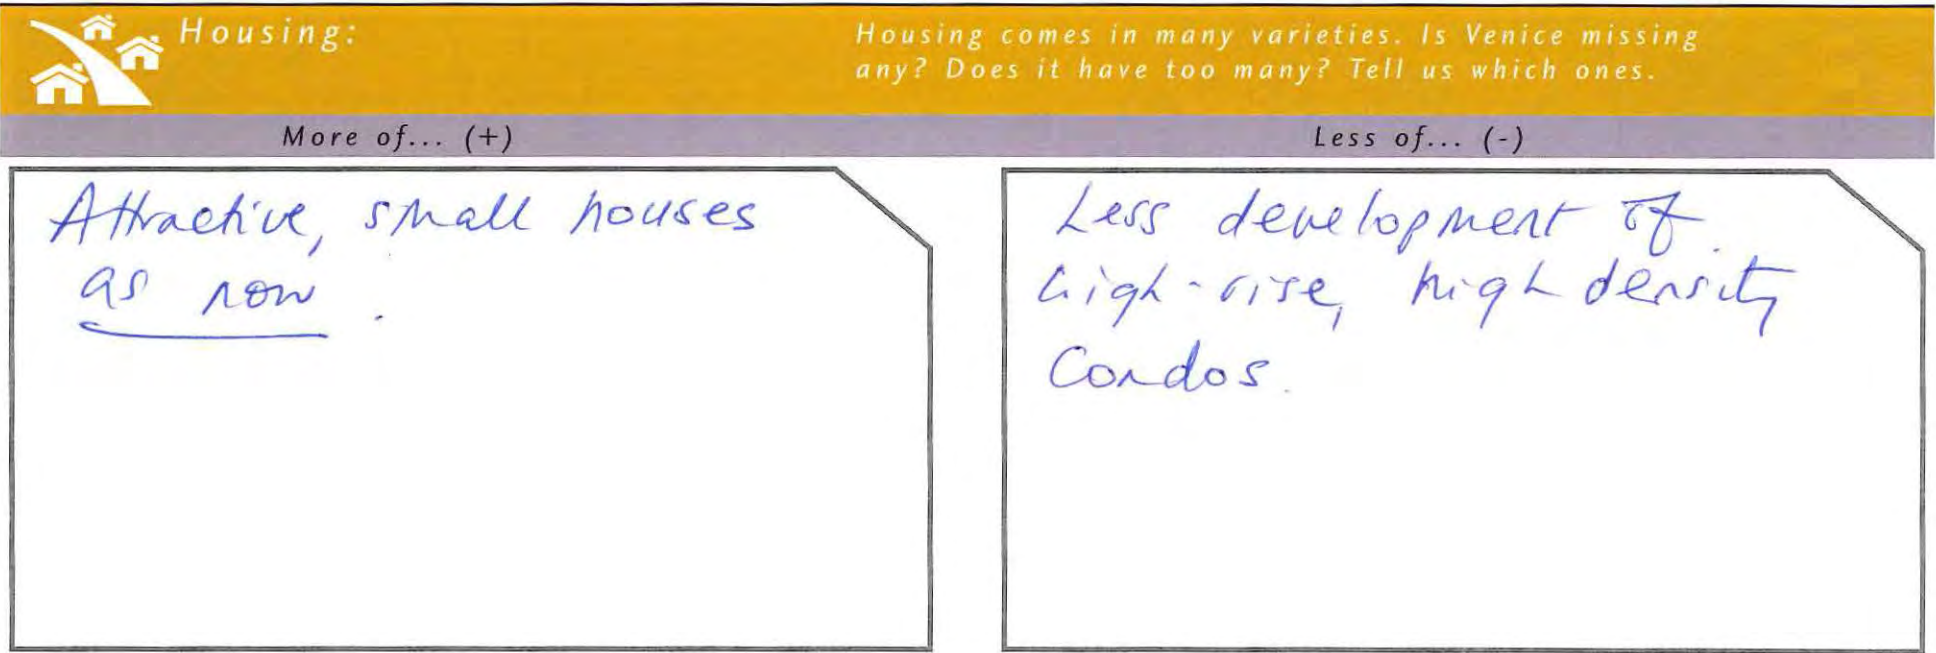 Housing:
Housing comes in many varieties. Is Venice missing
any? Does it have too many? Tell us which ones.
More of... (+)
Less of... (-)
Attractive, small houses
as now.
Less development of
high-rise, high density
Condos.